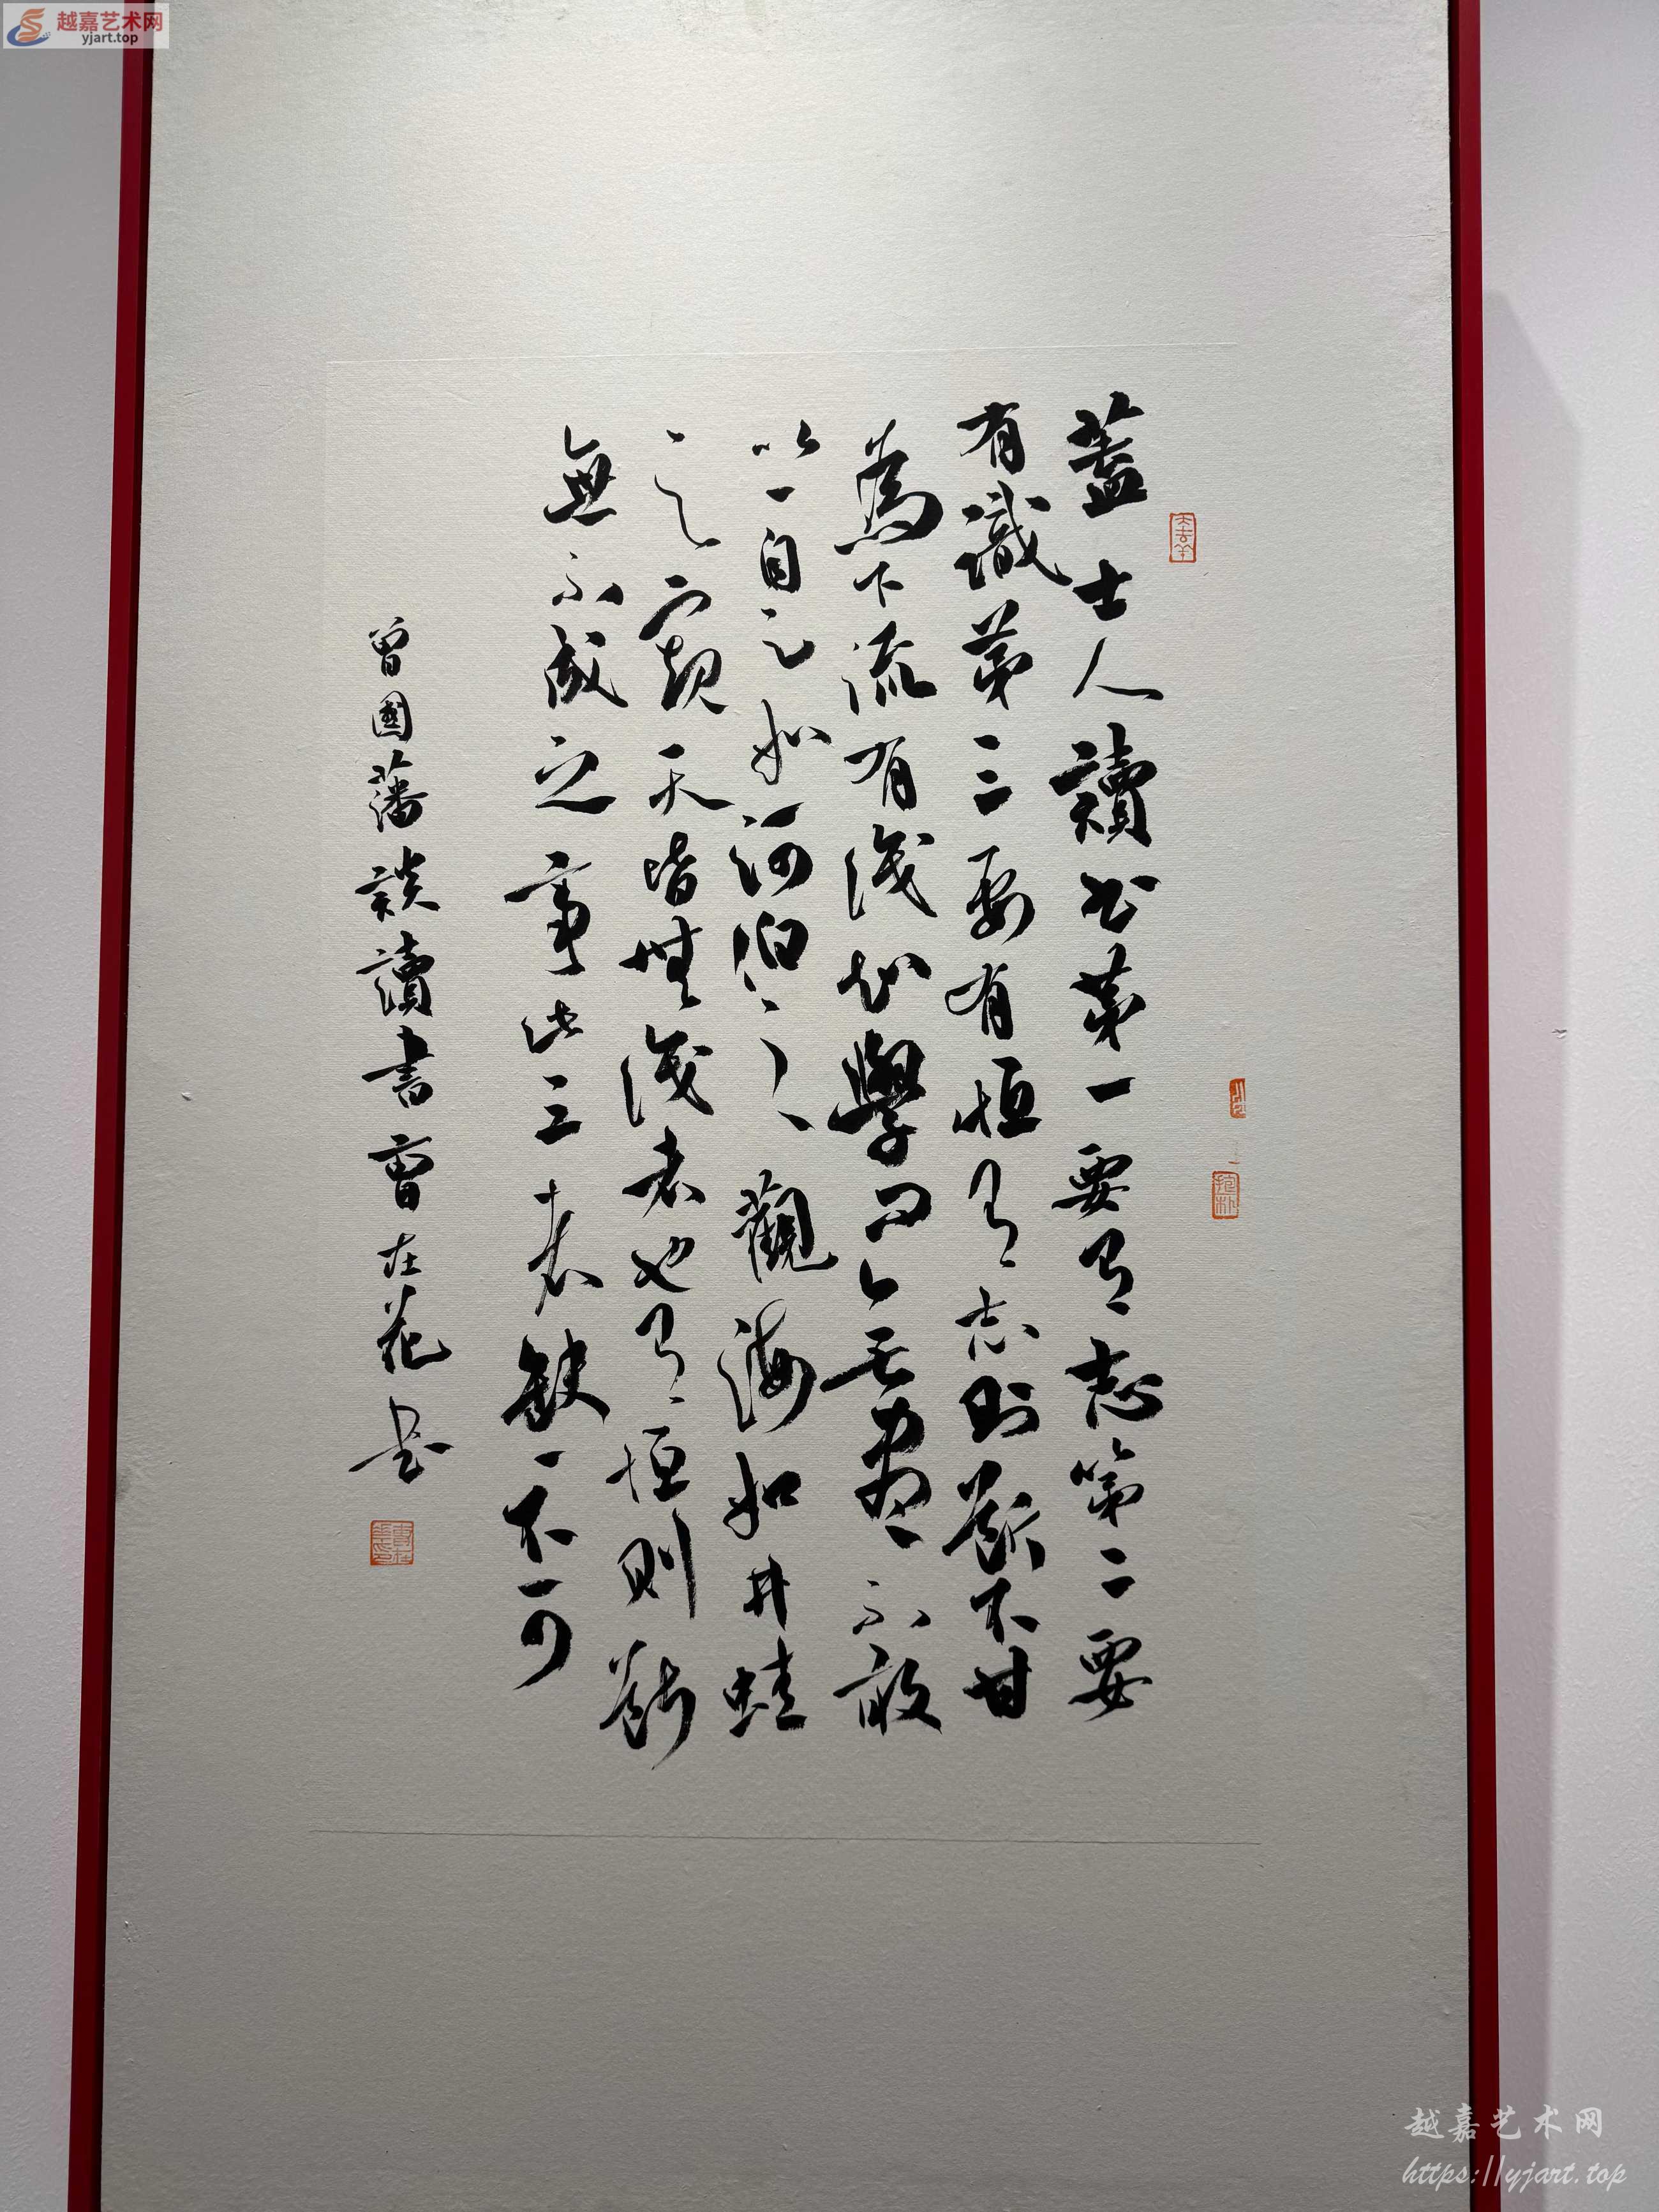 蓋士人讀书第一要有志第二要
有識第三要有恒有志則斷不甘
為下流有識知學问無盡不敢
以一自足如河伯之觀海如井蛙
之窺天皆無識者也有恒則斷
無不成之事此三者缺一不可
曾國藩談讀書曹在花书
抱朴
越嘉艺术网
yjart.top
越嘉艺术网
https://yjart.top